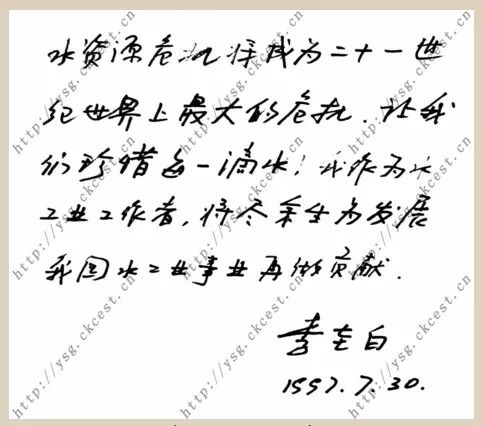 水资源危机将成为二十一世
纪世界上最大的危机，让我
们珍惜每一滴水！我作为水
工业工作者，将尽余生为发展
我国水工业事业再做贡献．
李圭白
1997.7.30.
http://ysg.ckcest.cn